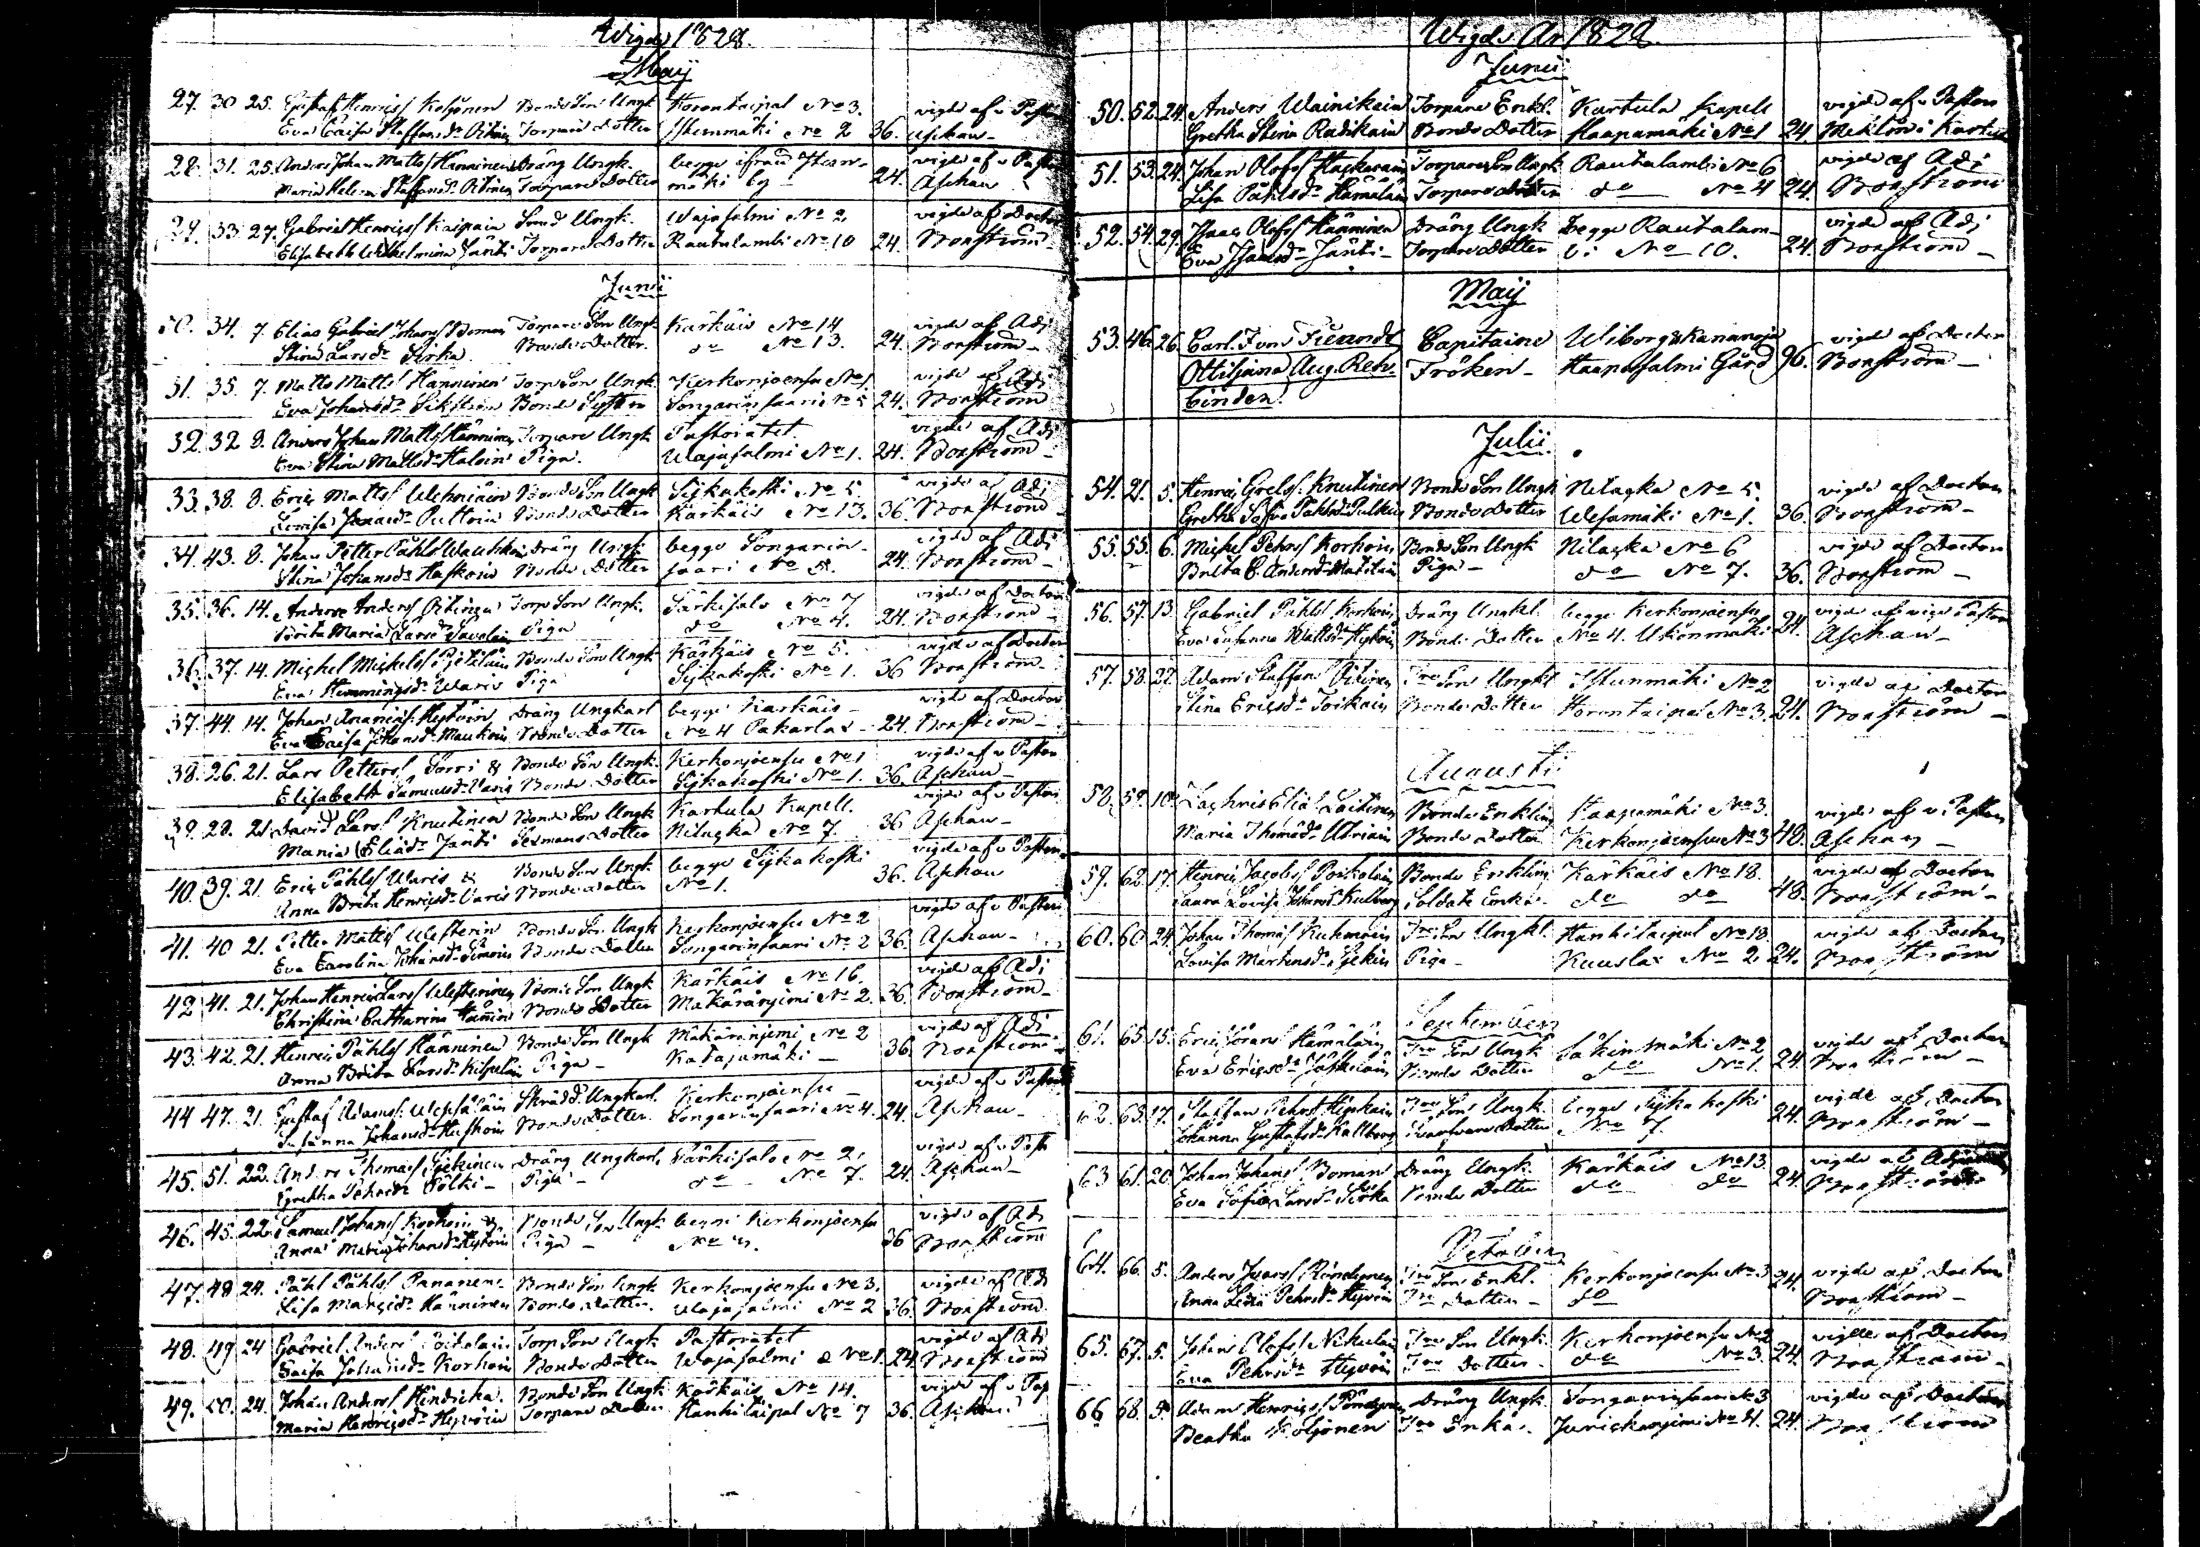 Wigde 1828.
Maij
27. 30. 25. Gustaf Henricss Koljonen Bonde Son Ungk. Horontaipal No 3. vigde af v Past
Eva Caisa Staffansdr Ritinen Torpare Dotter Istunmäki No 2 36. Aschan
28. 31. 25. Anders Johan Mattss Hänninen Dräng Ungk. begge ifrån Istun- vigde af v Past
Maria Helena Staffansdr Ritinen Torpare Dotter mäki by 24. Aschan
29. 33. 27. Gabriel Henricss Kaipain Smed Ungk. Wajasalmi No 2 vigde af Doctor
Elisabeth Wilhelmina Jänti Torpare Dotter Rautalambi No 10 24. Borström
Junii
30. 34. 7. Elias Gabriel Johanss Boman Torpare Son Ungk. Kärkäis No 14 vigde af Adj
Stina Larsdr Sirka Bonde Dotter. do No 13. 24. Borström
31. 35. 7. Matts Mattss Hänninen Torp Son Ungk. Kerkonjoensu No 1. vigde af Adj
Eva Johansdr Bonde Syster Songarinsaari No 5 24. Borström
32. 32. 8. Anders Johan Mattss Hänninen Torpare Ungk. Pastoratet vigde af Adj
Eva Stina Mattsdr Piga. Wajasalmi No 1. 24. Borström
33. 38. 8. Eric Mattss Bonde Son Ungk Sijkakoski No 5. vigde af Adj
Lovisa Puttoin Bonde Dotter Kärkäis No 13. 36. Borström
34. 43. 8. Johan Petter Påhlss Dräng Ungk. begge Songarin- vigde af Adj
Stina Johansdr Haskoin Bonde Dotter saari No 5. 24. Borström
35. 36. 14. Anders Anderss Ritinen Torp Son Ungk. Särkisalo No 7 vigde af Doctor
Brita Maria Larsdr Savolain Piga do No 4. 24. Borström
36. 37. 14. Michel Michelss Bonde Son Ungk Kärkäis No 5. vigde af Doctor
Eva Hemmingsdr Waris Piga Sijkakoski No 1. 36 Borström
37. 44. 14. Johan Ananiass Hytöin Dräng Ungkarl begge Kärkäis vigde af Doctor
Eva Caisa Johansdr Bonde Dotter No 4 Pakarla 24. Borström
38. 26. 21. Lars Petterss Sorri & Bonde Son Ungk. Kerkonjoensu No 1 vigde af v Pastor
Elisabeth Samuelsdr Varis Bonde Dotter Sijkakoski No 1. 36. Aschan
39. 28. 21. David Larss Knutinen Bonde Son Ungk Kartula Kapell. vigde af v Pastor
Maria Eliasdr Jänti Sexmans Dotter Nilagka No 7. 36 Aschan
40. 39. 21. Eric Påhlss Waris & Bonde Son Ungk. begge Sijkakoski vigde af v Pastor
Anna Brita Henricsdr Varis Bonde Dotter No 1. 36. Aschan
41. 40 21. Petter Mattss Westerin Bonde Son Ungk Kerkonjoensu No 2 vigde af v Pastor
Eva Carolina Johansdr Simoin Bonde Dotter Songarinsaari No 2 36. Aschan
42 41. 21. Johan Henric Larss Westerinen Bonde Son Ungk Kärkäis No 16. vigde af Adj
Christina Catharina Hännin Bonde Dotter Mäkäränjemi No 2. 36. Borström
43. 42. 21. Henric Påhlss Hänninen Bonde Son Ungk Mäkäränjemi No 2 vigde af Adj
Anna Brita Larsdr Piga Katajamäki 36 Borström
44 47. 21. Gustaf Adamss Skrädd. Ungkarl. Kerkonjoensu vigde af v Pastor
Susanna Johansdr Haskoin Bonde Dotter Songarinsaari No 4. 24. Aschan
45. 51. 22. Anders Thomass Dräng Ungkarl. Särkisalo No 2. vigde af v Past
Gretha Pehrsdr Pölki Piga do No 7. 24. Aschan
46. 45. 22. Samuel Johanss Korhoin & Bonde Son Ungk begge Kerkonjoensu vigde af Adj
Anna Maria Johansdr Hytöin Piga 36 Borström
47. 48 24. Påhl Påhlss Pananen Bonde Son Ungk Kerkonjoensu No 3. vigde af Adj
Lisa Hänninen Bonde Dotter. Wajasalmi No 2 36. Borström
48. 49 24 Gabriel Anderss Torp Son Ungk. Pastoratet vigde af Adj
Caisa Johansdr Korhoin Bonde Dotter Wajasalmi No 1. 24 Borström
49. 50. 24. Johan Anderss Hindricka Bonde Son Ungk. Kärkäis No 14. vigde af v Pas
Maria Henricsdr Hyvöin Torpare Dotter Hankitaipal No 7 36. Aschan
Wigde År 1828.
Junii
50. 52. 24. Anders Wainikain Torpare Enkl. Kartula Kapell vigde af v Pastor
Gretha Stina Radikain Bonde Dotter Haapamäki No 1 24. i Kartula
51. 53. 24. Johan Olofss Torpare Son Ungk. Rautalambi No 6 vigde af Adj
Lisa Påhlsdr Hämäläin Torpare Dotter do No 4 24. Borström
52. 54. 29. Isaac Olofss Hänninen Dräng Ungk begge Rautalam- vigde af Adj
Eva Isaacsdr Jänti Torpare Dotter bi No 10. 24. Borström
Maij
53. 46. 26. Carl. F von Fieandt Capitaine Wiborgs vigde af Doctor
Ottiljana Aug. Reh- Fröken Haapasalmi Gård 96. Borström
binden.
Julii
54. 21. 5. Henric Grelss Knutinen Bonde Son Ungk Nilagka No 5. vigde af Doctor
Gretha Sofia Påhlsdr Pulkin Bonde Dotter Wesamäki No 1. 36 Borström
55. 55. 6. Michel Pehrss Korhoin Bonde Son Ungk Nilagka No 6 vigde af Doctor
Brita C. Andersdr Piga do No 7. 36. Borström
56. 57. 13. Gabriel Påhlss Korhoin Dräng Ungkl. begge Kerkonjoensu vigde af vice Pastor
Eva Susanna Mattsdr Hytöin Bonde Dotter No 4. Ukonmäki 24. Aschan
57. 58. 27. Adam Staffanss Ritinen Tre Son Ungkl Istunmäki No 2 vigde af Doctor
Stina Ericsdr Toikain Bonde Dotter Horontaipal No 3. 24. Borström
Augusti
58. 59. 10. Zachris Eliass Laitinen Bonde Enkling Haapamäki No 3. vigde af v Pastor
Maria Thomasdr Bonde Dotter Kerkonjoensu No 3 48. Aschan
59. 62. 17. Henric Jacobss Poikolain Bonde Enkling Kärkäis No 18. vigde af Doctor
Laura Lovisa Johansdr Kulberg Soldate Enka. do do 48. Borström
60. 60 24. Johan Thomass Kuhmoin Tre Son Ungkl. Hankitaipal No 18. vigde af Doctor
Lovisa Mårtensdr Piga Kuusla No 2. 24. Borström
September
61. 65. 15. Eric Göranss Hämäläin Tre Son Ungk. No 2 vigde af Doctor
Eva Ericsdr Bonde Dotter do No 1. 24. Borström
62. 63. 17. Staffan Pehrss Tre Son Ungk. begge Sijkakoski vigde af Doctor
Johanna Gustafsdr Kallberg Dotter No 7. 24. Borström
63 61. 20. Johan Johanss Boman Dräng Ungk. Kärkäis No 13. vigde af
Eva Sofia Larsdr Sirka Bonde Dotter do do 24. Borström
October
64. 66. 5. Anders Tre Son Enkl. Kerkonjoensu No 3 24. vigde af Doctor
Anna Lena Pehrsdr Hyvöin Tre Dotter do Borström
65. 67. 5. Johan Olofss Nikulain Tre Son Ungk. Kerkonjoensu No 2 vigde af Doctor
Eva Pehrsdr Hyvöin Tre Dotter do No 3. 24. Borström
66 68. 5. Adam Henricss Pöndynen Dräng Ungk. Songarinsaari No 3 vigde af Doctor
Beatha Koljonen Tre Enka. No 4. 24. Borström